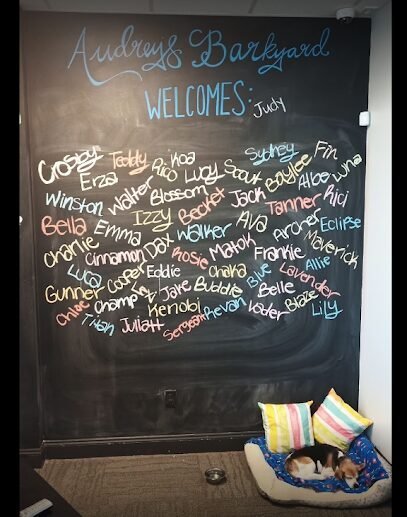 Audreys Barkyard
WELCOMES: Judy
Crosby Teddy Koa Sydney Fin
Erza Rico Lucy Scout Baylee Luna
Winston Walter Blossom Jack Albe Rici
Bella Emma Izzy Becket Tanner
Charlie Dax Walker Ava Archer Eclipse
Cinnamon Rosie Matok Frankie Maverick
Luca Cooper Eddie Chaka Blue Lavender Allie
Gunner Champ Jake Buddie Belle
Chloe Titan Kenobi Revan Vader Blaze Lily
Sergeant